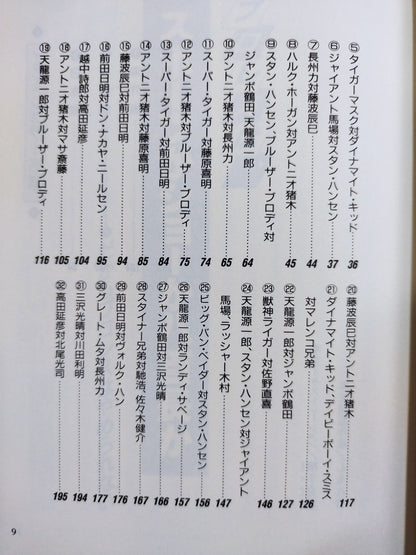 ⑤タイガーマスク対ダイナマイト・キッド……36
⑥ジャイアント馬場対スタン・ハンセン……37
⑦長州力対藤波辰巳……44
⑧ハルク・ホーガン対アントニオ猪木……45
⑨スタン・ハンセン、ブルーザー・ブロディ対
ジャンボ鶴田、天龍源一郎……64
⑩アントニオ猪木対長州力……65
⑪スーパー・タイガー対藤原喜明……74
⑫アントニオ猪木対ブルーザー・ブロディ……75
⑬スーパー・タイガー対前田日明……84
⑭アントニオ猪木対藤原喜明……85
⑮藤波辰巳対前田日明……94
⑯前田日明対ドン・ナカヤ・ニールセン……95
⑰越中詩郎対高田延彦……104
⑱アントニオ猪木対マサ斎藤……105
⑲天龍源一郎対ブルーザー・ブロディ……116
⑳藤波辰巳対アントニオ猪木……117
㉑ダイナマイト・キッド、デイビーボーイ・スミス
対マレンコ兄弟……126
㉒天龍源一郎対ジャンボ鶴田……127
㉓獣神ライガー対佐野直喜……146
㉔天龍源一郎、スタン・ハンセン対ジャイアント
馬場、ラッシャー木村……147
㉕ビッグ・バン・ベイダー対スタン・ハンセン……156
㉖天龍源一郎対ランディ・サベージ……157
㉗ジャンボ鶴田対三沢光晴……166
㉘スタイナー兄弟対馳浩、佐々木健介……167
㉙前田日明対ヴォルク・ハン……176
㉚グレート・ムタ対長州力……177
㉛三沢光晴対川田利明……194
㉜高田延彦対北尾光司……195
9